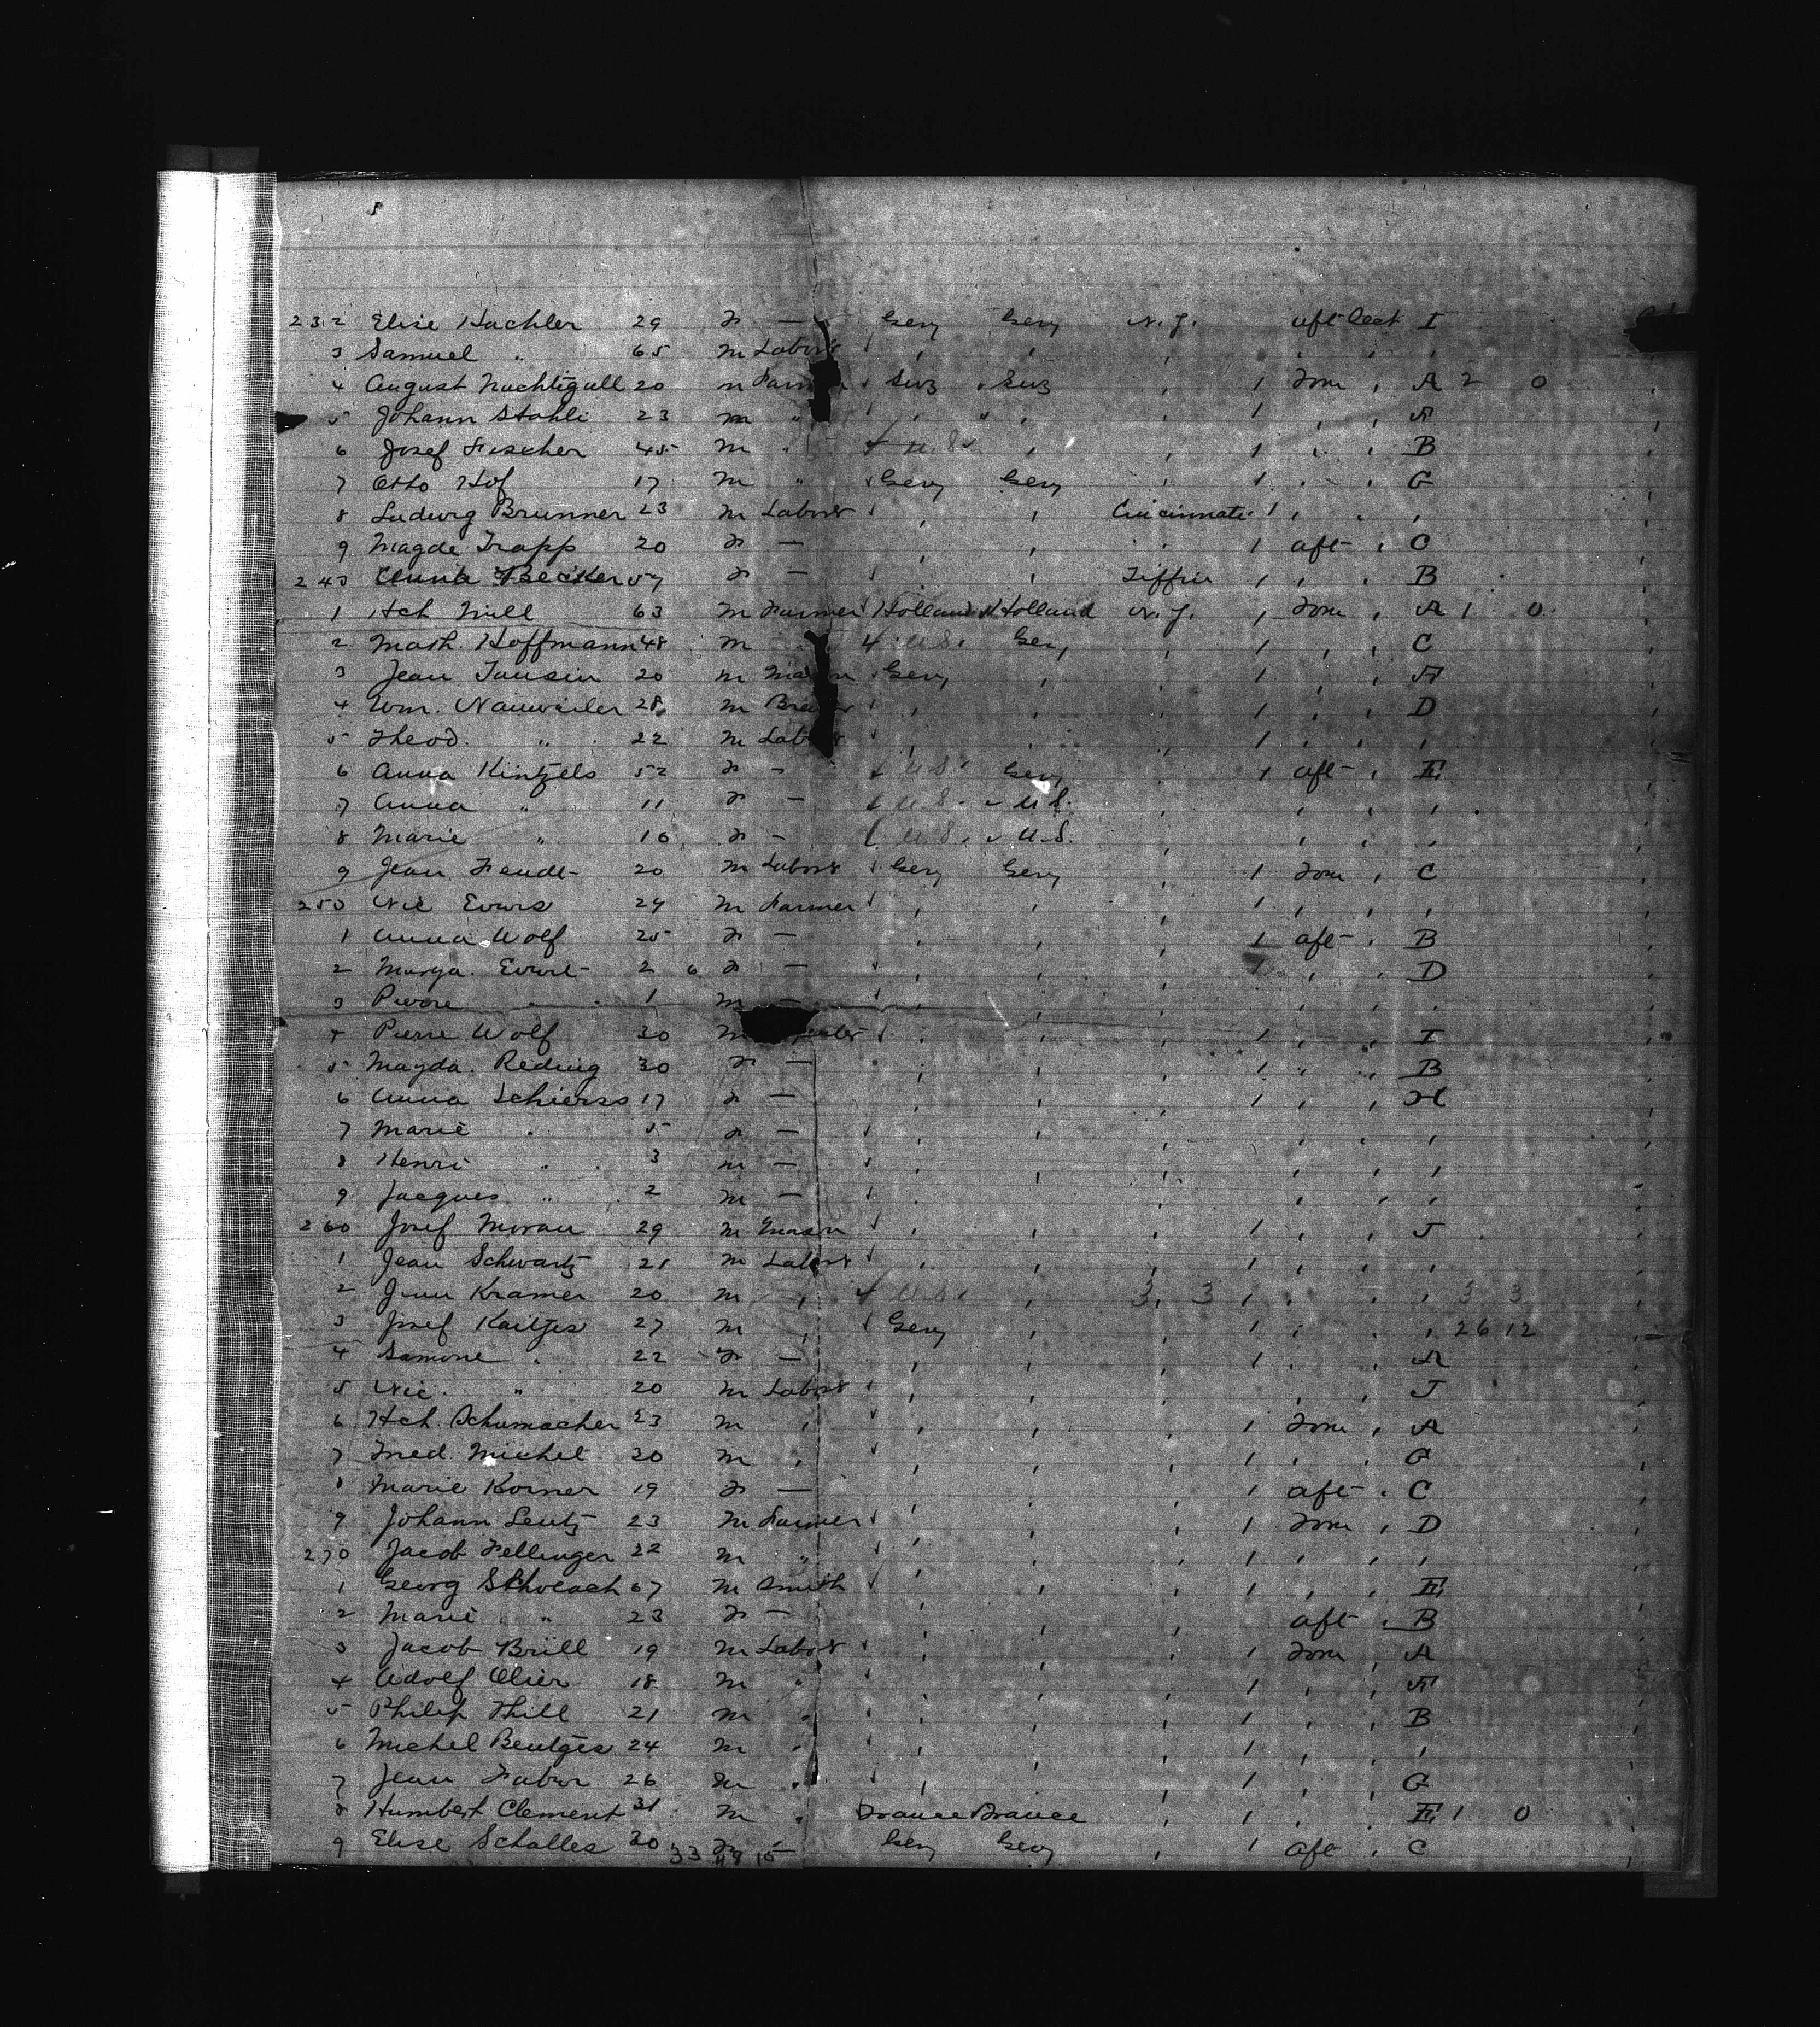 232 Elise Hachler 29 F — Gery Gery N.Y. aft Deck I
3 Samuel " 65 M Labor , , , , , ,
4 August Nachtigall 20 m Farmer Swz Swz , 1 Fore , A 2 0
5 Johann Stahli 23 m " , " , , 1 , , A
6 Josef Fischer 45 M " U.S. , , 1 , , B
7 Otto Hof 17 M " Gery Gery , 1 , , G
8 Ludwig Brunner 23 M Labor , , Cincinnati 1 , , ,
9 Magde Trapp 20 F — , , , 1 aft , C
243 Anna Becker 57 F — , , Tiffin 1 , , B
1 Hch Mill 63 M Farmer Holland Holland N.Y. 1 Fore , A 1 0
2 Math. Hoffmann 48 M , U.S. Gery , 1 , , C
3 Jean Jansin 20 M Mason Gery , , 1 , , A
4 Wm. Nauweiler 28 M , , , 1 , , D
5 Theod. " 22 M Labor , , , 1 , , ,
6 Anna Kintzels 52 F — U.S. Gery , 1 aft , E
7 Anna " 11 F — U.S. U.S. , , ,
8 Marie " 10 F — U.S. U.S. , , , ,
9 Jean 20 M Labor Gery Gery , 1 Fore , C
250 Nic 29 M Farmer , , , 1 , , ,
1 Anna Wolf 25 F — , , , 1 aft , B
2 Marga. 2 6 F — , , , , , D
3 Pierre " 1 M — , , , , , ,
4 Pierre Wolf 30 M , , , 1 , , I
5 Magda. Reding 30 F — , , , 1 " " B
6 Anna Schierss 17 F — , , , 1 , , H
7 Marie " 5 F — , , , , , ,
8 Henri " 3 M — , , , , , ,
9 Jacques " 2 M — , , , , , ,
260 Josef Moran 29 M Mason , , , 1 , , J
1 Jean Schwartz 21 M Labor , , , 1 , , ,
2 Jean Kramer 20 M , U.S. , 3, 3 1 , , , 3 3
3 Josef Kaitjes 27 M , Gery , , 1 , , , 26 12
4 " 22 F — , , , 1 , , A
5 Nic. " 20 M Labor , , , , , J
6 Hch. Schumacher 23 M , , , , 1 Fore , A
7 Fred. Michel 30 M , , , , 1 , , G
8 Marie Korner 19 F — , , , 1 aft , C
9 Johann Lentz 23 M Farmer , , , 1 Fore , D
270 Jacob Fellinger 22 M " , , , 1 , , ,
1 Georg 67 M Smith , , , 1 , , E
2 Marie " 23 F — , , , aft , B
3 Jacob Brill 19 M Labor , , , 1 Fore , A
4 Adolf Olier 18 M " , , , 1 , , A
5 Philip Thill 21 M " , , , 1 , , B
6 Michel Bentges 24 M " , , , 1 , , ,
7 Jean Faber 26 M " , , , 1 , , G
8 Humbert Clement 31 M " France France , 1 , , E 1 0
9 Elise Schalles 30 F — Gery Gery , 1 aft , C
33 49 15